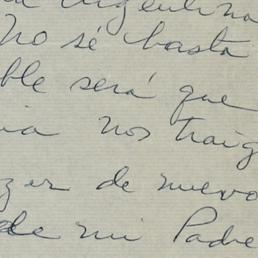 la Argentina
No sé basta
ble será que
ia nos traig
zar de nuevo
de mi Padre